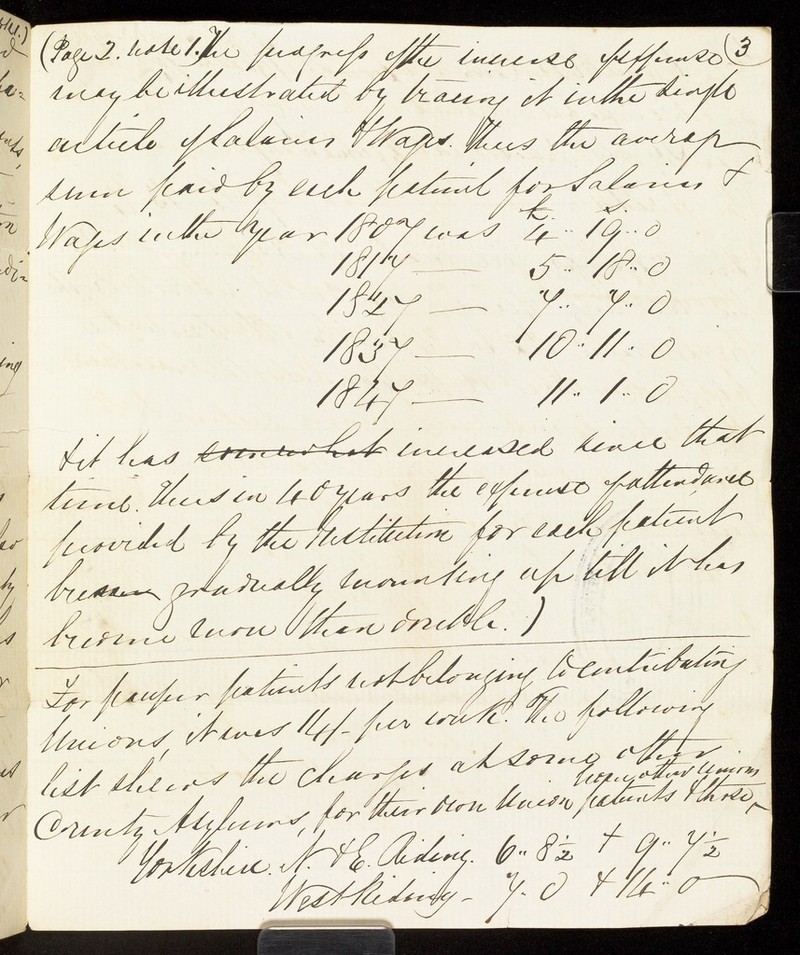 (Page 2. note 1.) The progress of the increase of expense (3
may be illustrated by tracing it in the single
article of Salaries & Wages. Thus the average
sum paid by each patient for Salaries &
£. s.
Wages in the year 1807 was 4.. 19.. 0
1817 — 5.. 18.. 0
1827 — 7.. 7.. 0
1837 — 10.. 11.. 0
1847 — 11.. 1.. 0
& it has somewhat increased since that
time. Thus in 40 years the expense of attendance
provided by the Institution for each patient
been gradually mounting up till it has
become more than double.)
For pauper patients not belonging to contributing
Unions, it was 14/- per week. The following
list shews the charges at some other
County Asylums, for their own Union patients & those
from other Unions
Yorkshire. N. & E. Riding. 6.. 8½ & 9.. 7½
West Riding - 7. 0 & 14.. 0